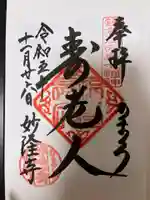 奉拝
寿老人
令和五年
十一月廿八日 妙隆寺